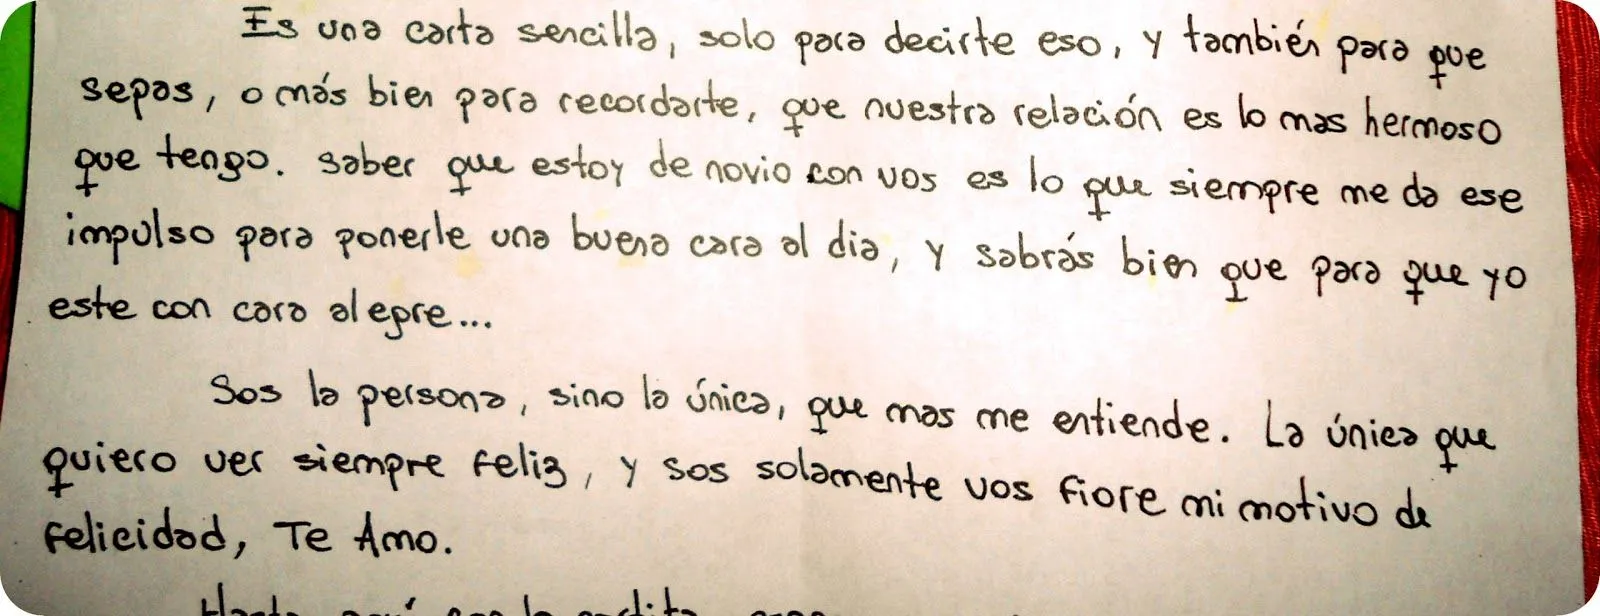 Es una carta sencilla, solo para decirte eso, y también para que
sepas, o más bien para recordarte, que nuestra relación es lo mas hermoso
que tengo. saber que estoy de novio con vos es lo que siempre me da ese
impulso para ponerle una buena cara al dia, y sabrás bien que para que yo
este con cara alegre...
Sos la persona, sino la única, que mas me entiende. La única que
quiero ver siempre feliz, y sos solamente vos fiore mi motivo de
felicidad, Te Amo.